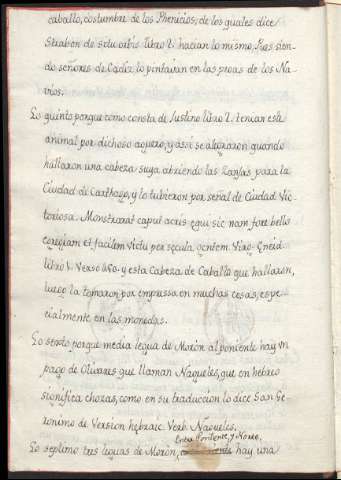 caballo, costumbre de los Phenicios; de los quales dice
Strabon de situ orbis libro 2. hacian lo mismo, Pues sien-
do señores de Cadiz lo pintavan en las proas de los Na-
vios.
Lo quinto porque como consta de Justino libro 2. tenian esta
animal por dichoso aguero, y assi se alegraron quando
hallaron una cabeza suya abriendo las Zanjas para la
Ciudad de Carthago, y lo tubieron por señal de Ciudad Vic-
toriosa. Monstrarat caput acris equi sic nam fore bello
egregiam et facilem victu per secula gentem. Virg. Eneid.
libro 1. Verso 450. y esta Cabeza de Caballo que hallaron,
luego la tomaron por empressa en muchas cosas, espe-
cialmente en las monedas.
Lo sexto porque media legua de Moron al poniente hay un
pago de Olivares que llaman Naqueles, que en hebreo
significa chozas, como en su traduccion lo dice San Ge-
ronimo de Version hebraic. Verb. Naqueles.
Entre Poniente, y Norte,
Lo septimo tres leguas de Moron, hay una